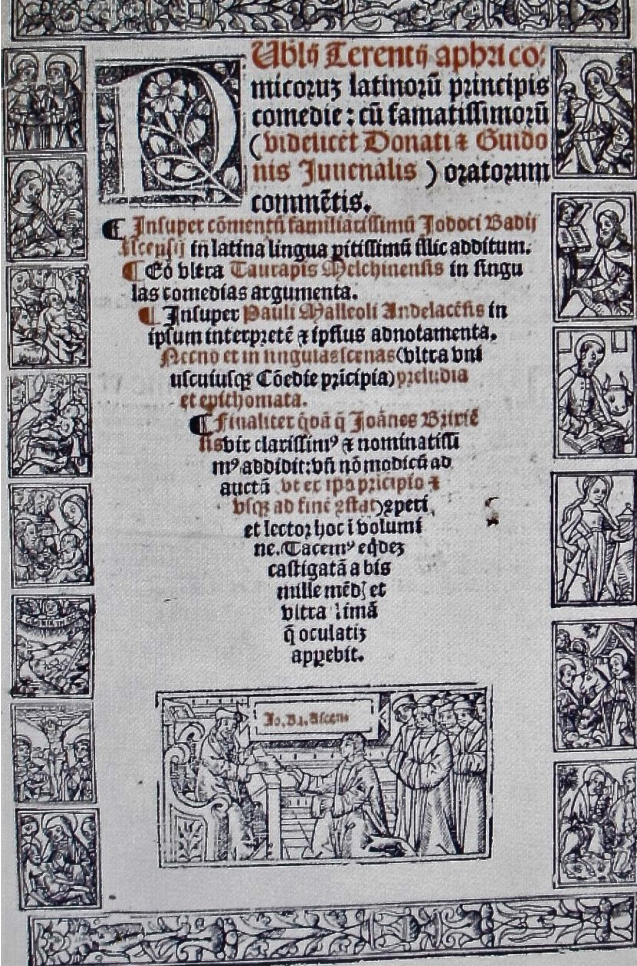 PUblij Terentij aphri co:
micoruʒ latinorū principis
comedie: cū famatissimorū
(videlicet Donati ⁊ Guido
nis Juuenalis) oratorum
commētis.
¶ Insuper cōmentū familiarissimū Jodoci Badij
Ascensij in latina lingua pitissimū illic additum.
¶ Eō vltra Taurapis Melchinensis in singu
las comedias argumenta.
¶ Insuper Pauli Malleoli Andelacēsis in
ipsum interpretē ⁊ ipsius adnotamenta.
Necnō et in singulas scenas (vltra vni
uscuiusqʒ Cōedie pricipia) preludia
et epithomata.
¶ Finaliter qōa q̄ Joānes
vir clarissimꝰ ⁊ nominatissi
mꝰ addidit: vn̄ nō modicū ad
auctā vt ex ipo pricipio ⁊
vsqʒ ad finē ꝯstat) ꝯperi
et lector hoc i volumi
ne. Tacemꝰ eqdeʒ
castigatā a bis
mille mēd et
vltra limā
q̄ oculatiʒ
appebit.
Jo. Ba. Ascens